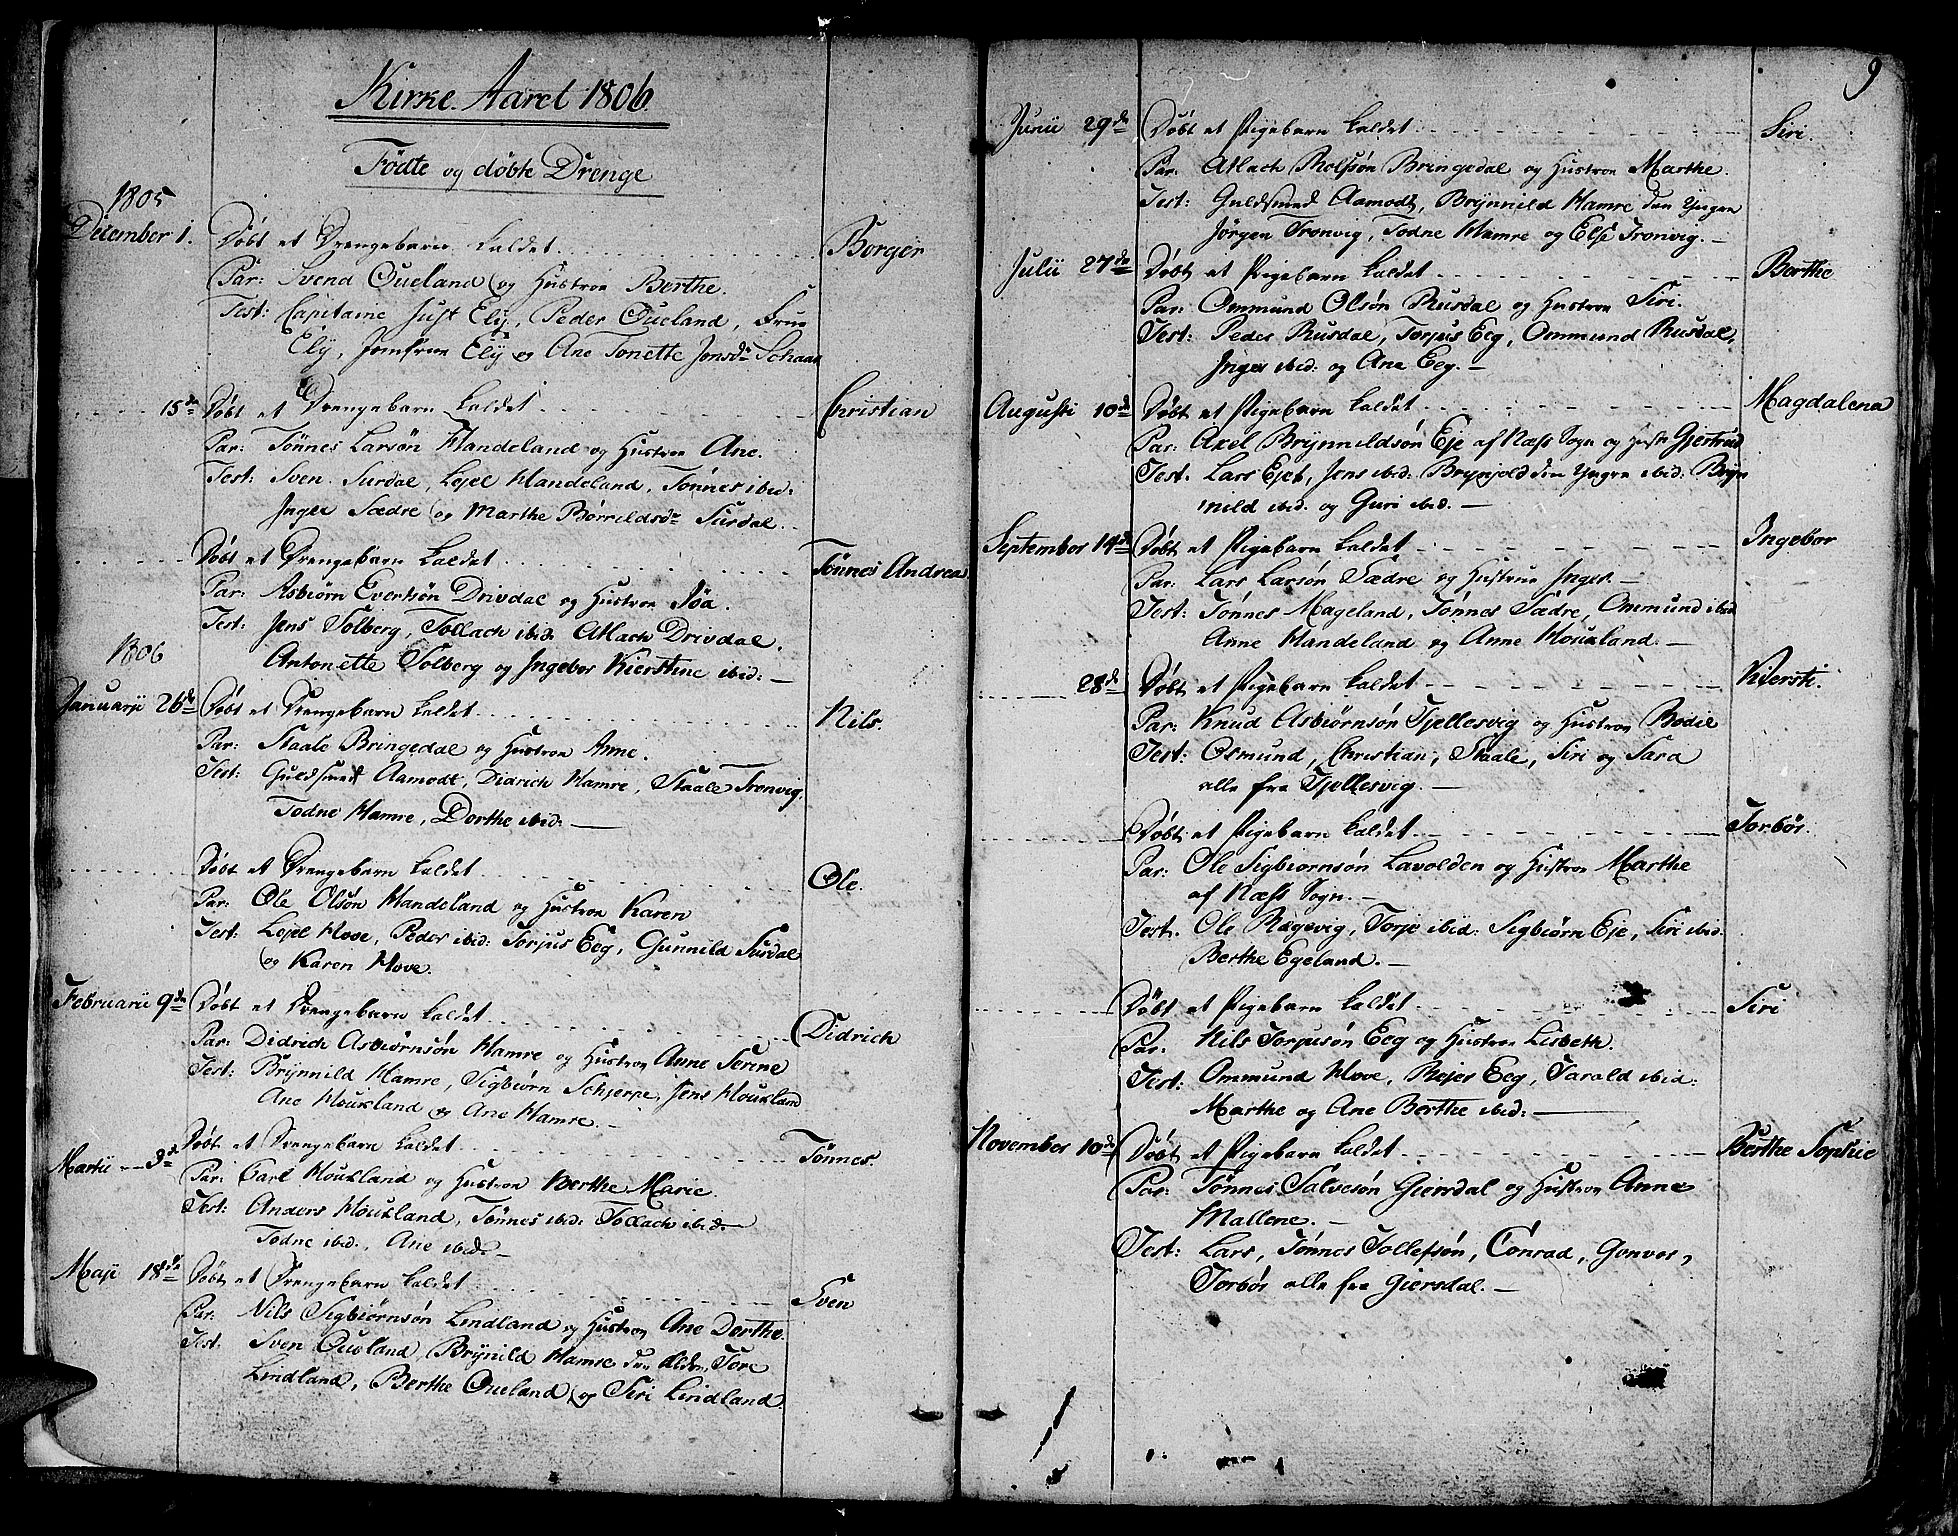 Kirke-Aaret 1806
Födte og döbte Drenge
1805
December 1. Döbt et Drengebarn kaldet Borger
Par: Svend Oueland og Hustroe Berthe.
Test: Capitaine Just Elÿ, Peder Oueland, Frue
Elÿ, Jomfrue Elÿ og Ane Tonette Jonsdr Schaar
15de Döbt et Drengebarn kaldet Christian
Par: Tönnes Larsön Handeland og Hustroe Ane.
Test: Sven Surdal, Lejel Handeland, Tönnes ibid:
Inger Sædre og Marthe Börrildsdr Surdal.
Döbt et Drengebarn kaldet Tönnes Andrea
Par: Asbiörn Evertsön Drivdal og Hustroe Söa.
Test: Jens Solberg, Tollach ibid: Atlach Drivdal,
Antonette Solberg og Ingebor Kierstine ibid:
1806
Januarii 26de Döbt et Drengebarn kaldet Nils.
Par: Staale Bringedal og Hustroe Anne.
Test: Guldsmed Aamodt, Didrich Hamre, Staale Tronvig,
Todne Hamre, Dorthe ibid:
Döbt et Drengebarn kaldet Ole.
Par: Ole Olsön Handeland og Hustroe Karen
Test: Lejel Hove, Peder ibid: Torjus Eeg, Gunnild Surdal
og Karen Hove.
Februarii 9de Döbt et Drengebarn kaldet Didrich
Par: Didrich Asbiörnsön Hamre og Hustroe Anne Serine
Test: Brÿnnild Hamre, Sigbiörn Schjerpe, Jens Houkland
Ane Houkland og Ane Hamre.
Martii 3de Döbt et Drengebarn kaldet Tönnes.
Par: Carl Houkland og Hustroe Berthe Marie.
Test: Anders Houkland, Tönnes ibid: Tollach ibid:
Todne ibid., Ane ibid:
Maji 18de Döbt et Drengebarn kaldet Sven
Par: Nils Sigbiörnsön Lindland og Hustroe Ane Dorthe.
Test: Sven Oueland, Brÿnild Hamre den Ældre, Tore
Lindland, Berthe Oueland og Siri Lindland.
9
Junii 29de Döbt et Pigebarn kaldet Siri.
Par: Atlach Rolfsön Bringedal og Hustroe Marthe.
Test: Guldsmed Aamodt, Brÿnnild Hamre den Yngre
Jörgen Tronvig, Todne Hamre og Else Tronvig.
Julii 27de Döbt et Pigebarn kaldet Berthe
Par: Ommund Olsön Rusdal og Hustroe Siri.
Test: Peder Rusdal, Torjus Eeg, Ommund Rusdal,
Inger ibid: og Ane Eeg.
Augusti 10de Döbt et Pigebarn kaldet Magdalena
Par: Axel Brÿnnildsön Eje af Næss Sogn og Hustr Gjertrud
Test. Lars Eje, Jens ibid: Brynjold den Yngre ibid: Brÿn
nild ibid. og Guri ibid.
September 14de Döbt et Pigebarn kaldet Ingebor
Par: Lars Larsön Sædre og Hustrue Inger.
Test: Tönnes Mageland, Tönnes Sædre, Ommund ibid
Anne Handeland og Anne Houkland.
28de Döbt et Pigebarn kaldet Kiersti.
Par: Knud Asbiörnsön Fjellesvig og Hustroe Bodil
Test: Osmund, Christian, Staale, Siri og Sara
alle fra Fjellesvig.
Döbt et Pigebarn kaldet Torbör.
Par: Ole Sigbiornsön Lavolden og Hustroe Marthe
af Næss Sogn.
Test. Ole Rægevig, Torje ibid: Sigbiörn Eje, Siri ibid:
Berthe Egeland.
Döbt et Pigebarn kaldet Siri
Par: Nils Torjusön Eeg og Hustroe Lisbeth.
Test: Ommund Hove, Rejer Eeg, Tarald ibid:
Marthe og Ane Berthe ibid:
November 10de Döbt et Pigebarn kaldet Berthe Sophie
Par: Tönnes Salvesön Giersdal og Hustroe Anne
Mallene.
Test: Lars, Tönnes Tollefsön, Conrad, Gunvor,
Torbör alle fra Giersdal.